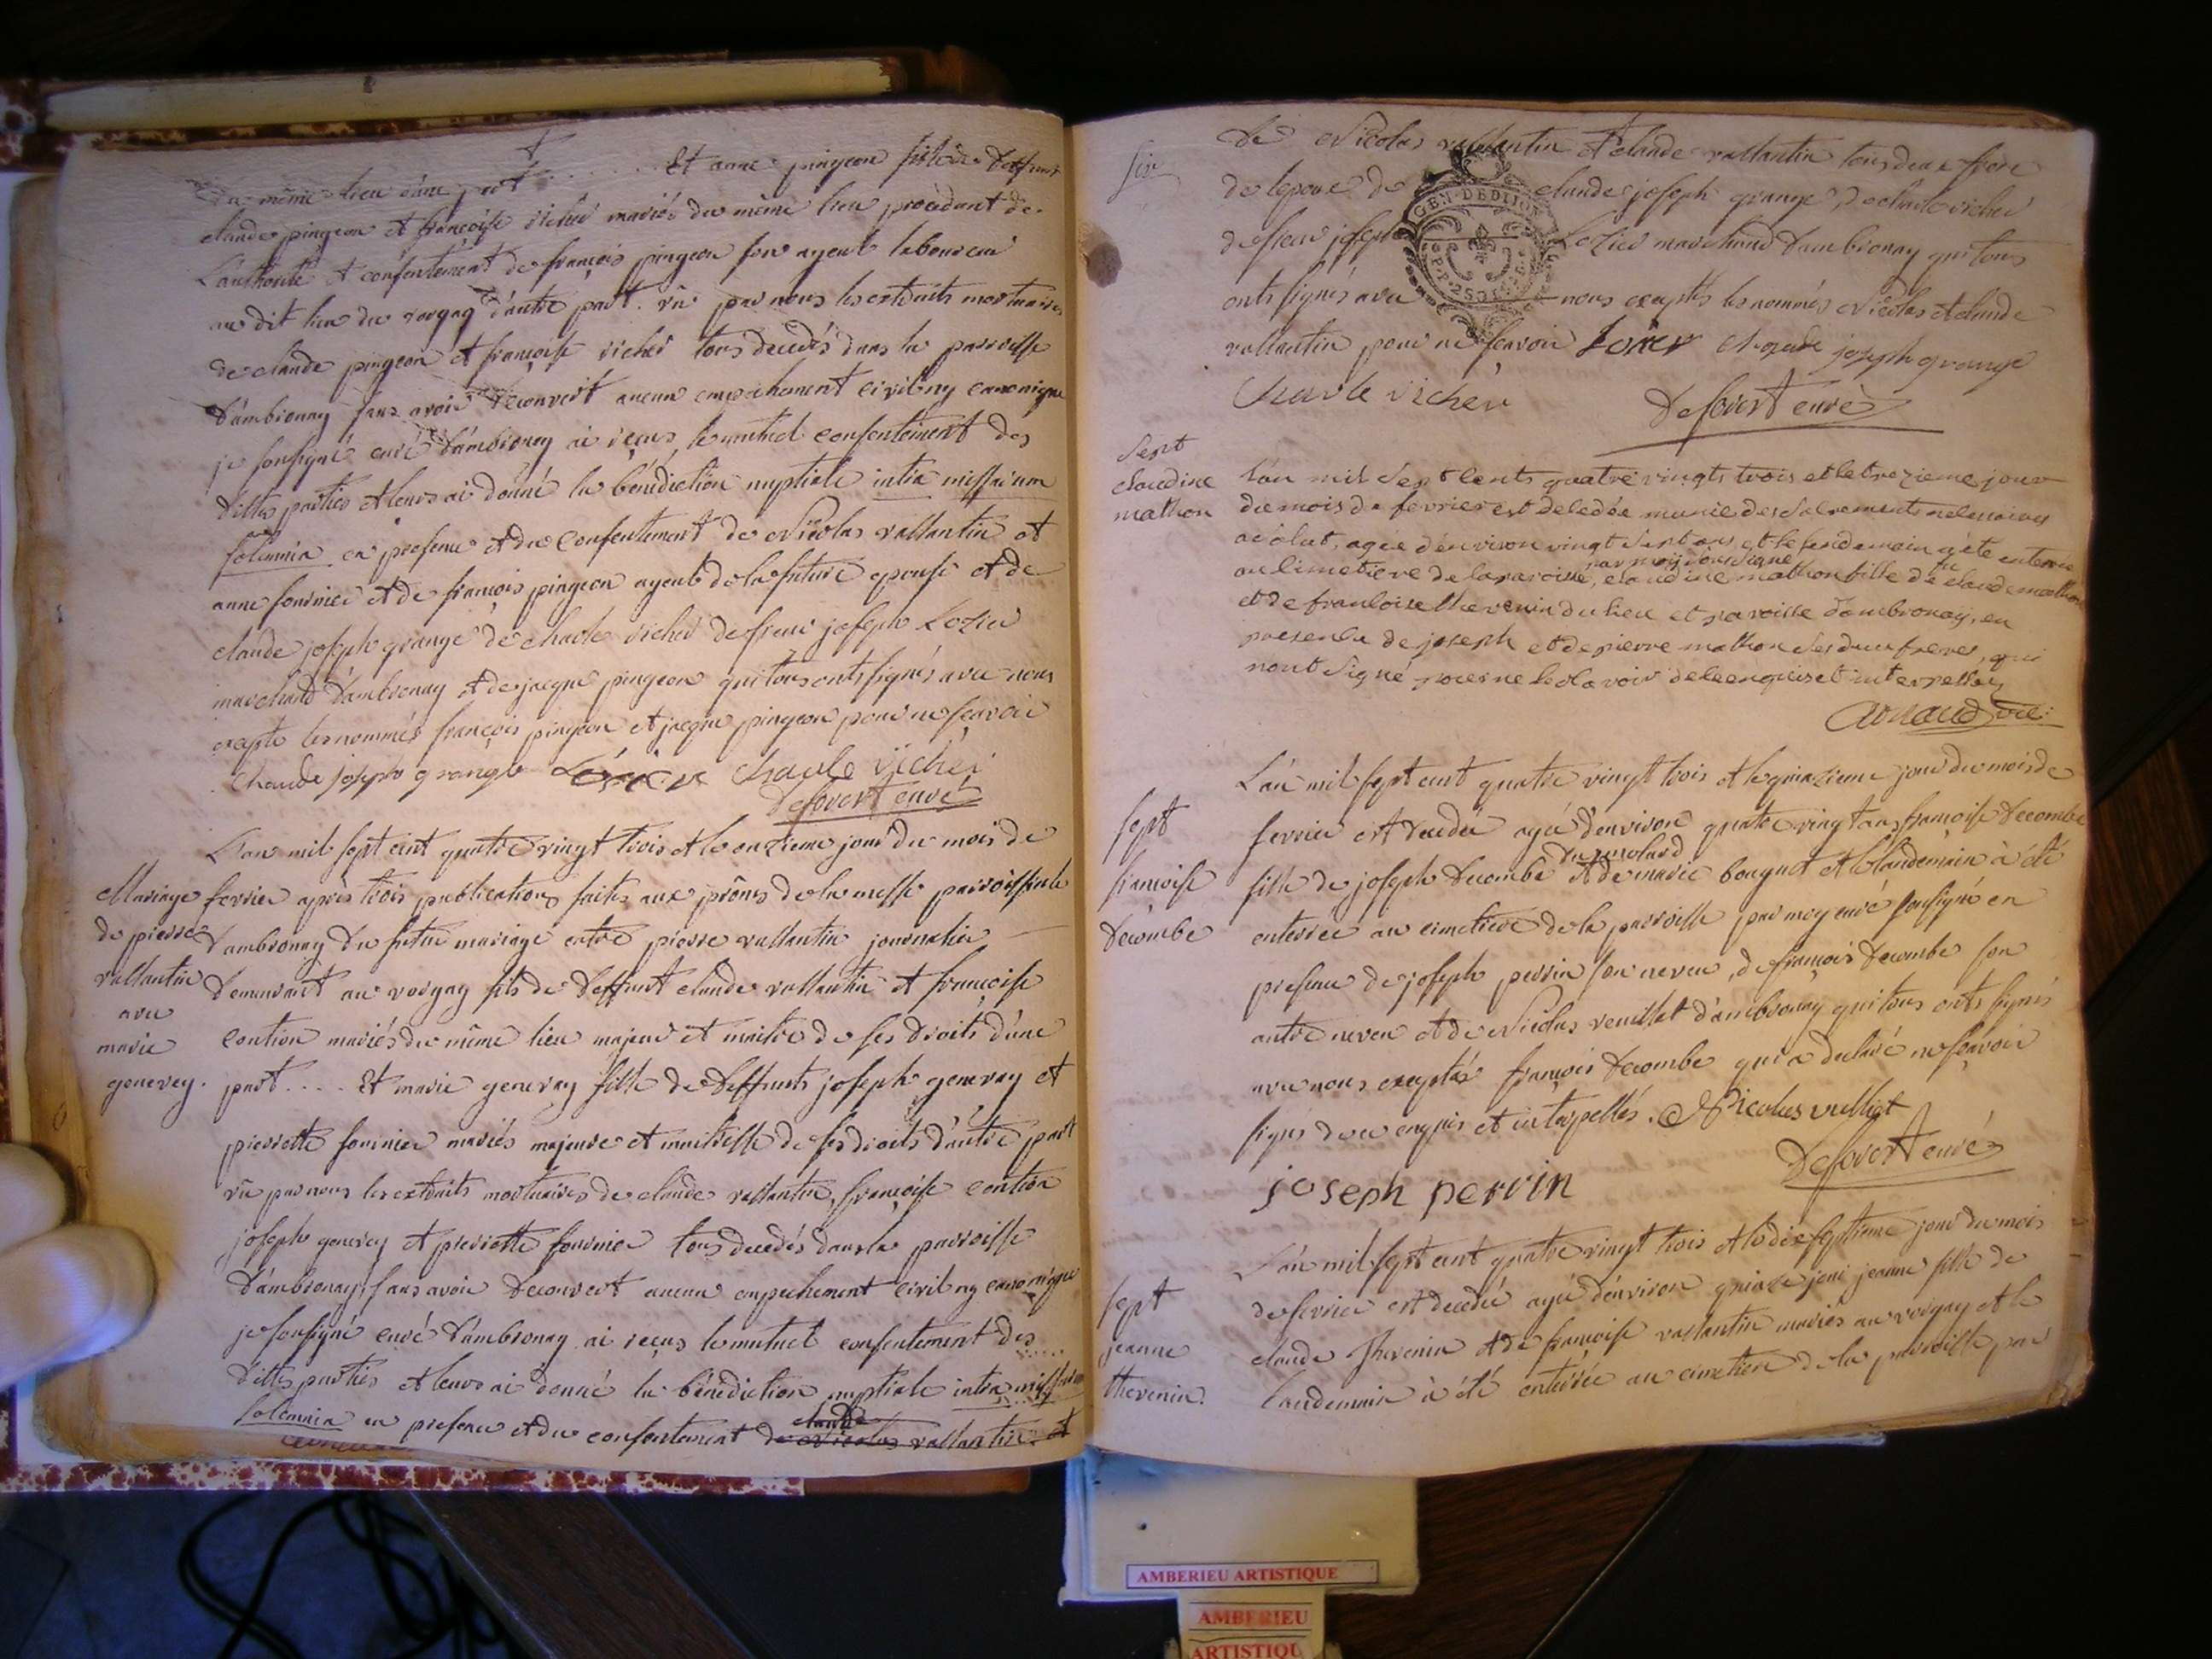 du même lieu d'une part ...... Et anne pingeon fille de deffunt
claude pingeon et françoise richer mariés du même lieu procédant de
l'authorité et consentement de françois pingeon son ayeul laboureur
au dit lieu du vorgay d'autre part. vû par nous les extraits mortuaires
de claude pingeon et françoise richer tous decedés dans la parroisse
d'ambronay sans avoir decouvert aucun empechement civil ny canonique
je soussigné curé d'ambronay ai reçus le mutuel consentement des
dittes parties et leurs ai donné la bénédiction nuptiale intra missarum
solemnia en presence et du consentement de Nicolas vallantin et
anne fournier et de françois pingeon ayeul de la future epouse et de
claude joseph grange de charle richer de sieur joseph Lozier
marchand d'ambronay et de jacque pingeon qui tous onts signés avec nous
excepté les nommés françois pingeon et jacque pingeon pour ne sçavoir
Claude joseph grange Lozier Charle Richer
Defovert curé
L'an mil sept cent quatre vingt trois et le onzieme jour du mois de
Mariage fevrier après trois publications faites aux prônes de la messe parroissiale
de pierre d'ambronay du futur mariage entre pierre vallantin journalier
vallantin demeurant au vorgay fils de deffunt claude vallantin et françoise
avec
marie contion mariés du même lieu majeur et maitre de ses droits d'une
genevey. part .... Et marie genevay fille de deffunts joseph genevay et
pierrette fournier mariés majeure et maitresse de ses droits d'autre part
vû par nous les extraits mortuaires de claude vallantin, françoise contion
joseph genevey et pierrette fournier tous decedés dans la parroisse
d'ambronay, sans avoir decouvert aucun empechement civil ny canonique
je soussigné curé d'ambronay ai reçus le mutuel consentement des
dittes parties et leurs ai donné la bénédiction nuptiale intra missarum
claude
solemnia en presence et du consentement de Nicolas vallantin et
six
de Nicolas vallantin et claude vallantin tous deux frere
de lepoux de claude joseph grange, de charle richer
de sieur joseph Lozier marchand d'ambronay qui tous
onts signés avec nous exceptés les nommés Nicolas et claude
vallantin pour ne sçavoir Lozier Claude joseph grange
Charle richer Defovert curé
Sept
claudine
mathon
L'an mil sept cents quatre vingts trois et le trezieme jour
du mois de fevrier est decedée munie des sacrements necessaires
a salut, agee d'environ vingt sept ans, et le lendemain a été enterrée
par moy soussigné
au cimetiere de la paroisse, claudine mathon fille de fu claude mathon
et de francoise thevenin du lieu et paroisse d'ambronay, en
presence de joseph et de pierre mathon ses deux freres, qui
nont signé pour ne le sçavoir de ce enquis et interpellés
Arnaud vic.
sept
françoise
decombe
L'an mil sept cent quatre vingt trois et le quinzieme jour du mois de
fevrier est decedée agée d'environ quatre vingt ans françoise decombe
du molard
fille de joseph decombe et de marie bouguet et le landemain à été
enterrée au cimetiere de la parroisse par moy curé soussigné en
presence de joseph perrin son neveu, de françois decombe son
autre neveu et de Nicolas veuillet d'ambronay qui tous onts signés
avec nous exceptés françois decombe qui a declaré ne sçavoir
signés de ce enquis et interpellés. Nicolas vulliet
joseph perrin Defovert curé
sept
jeanne
thevenin.
L'an mil sept cent quatre vingt trois et le dix septieme jour du mois
de fevrier est decedée agée d'environ quinze jour jeanne fille de
claude Thevenin et de françoise vallantin mariés au vorgay et le
landemain à été enterrée au cimetiere de la parroisse par
GEN. DE DIJON
AMBERIEU ARTISTIQUE
AMBERIEU
ARTISTIQU